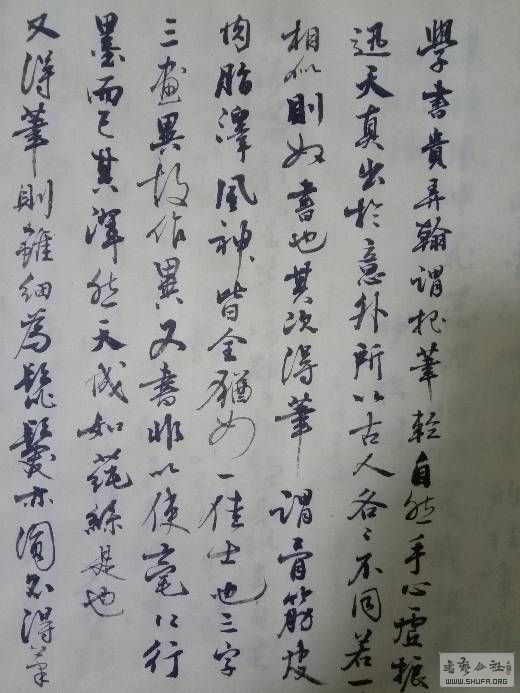 學書貴弄翰謂把筆輕自然手心虛振
迅天真出於意外所以古人各〻不同若一
相似則奴書也其次得筆謂骨筋皮
肉脂澤風神皆全猶如一佳士也三字
三畫異故作異又書非以使毫〻行
墨而已其渾然天成如蓴絲是也
又得筆則雖細為髭髮亦圓不得筆
書藝公社
WWW.SHUFA.ORG